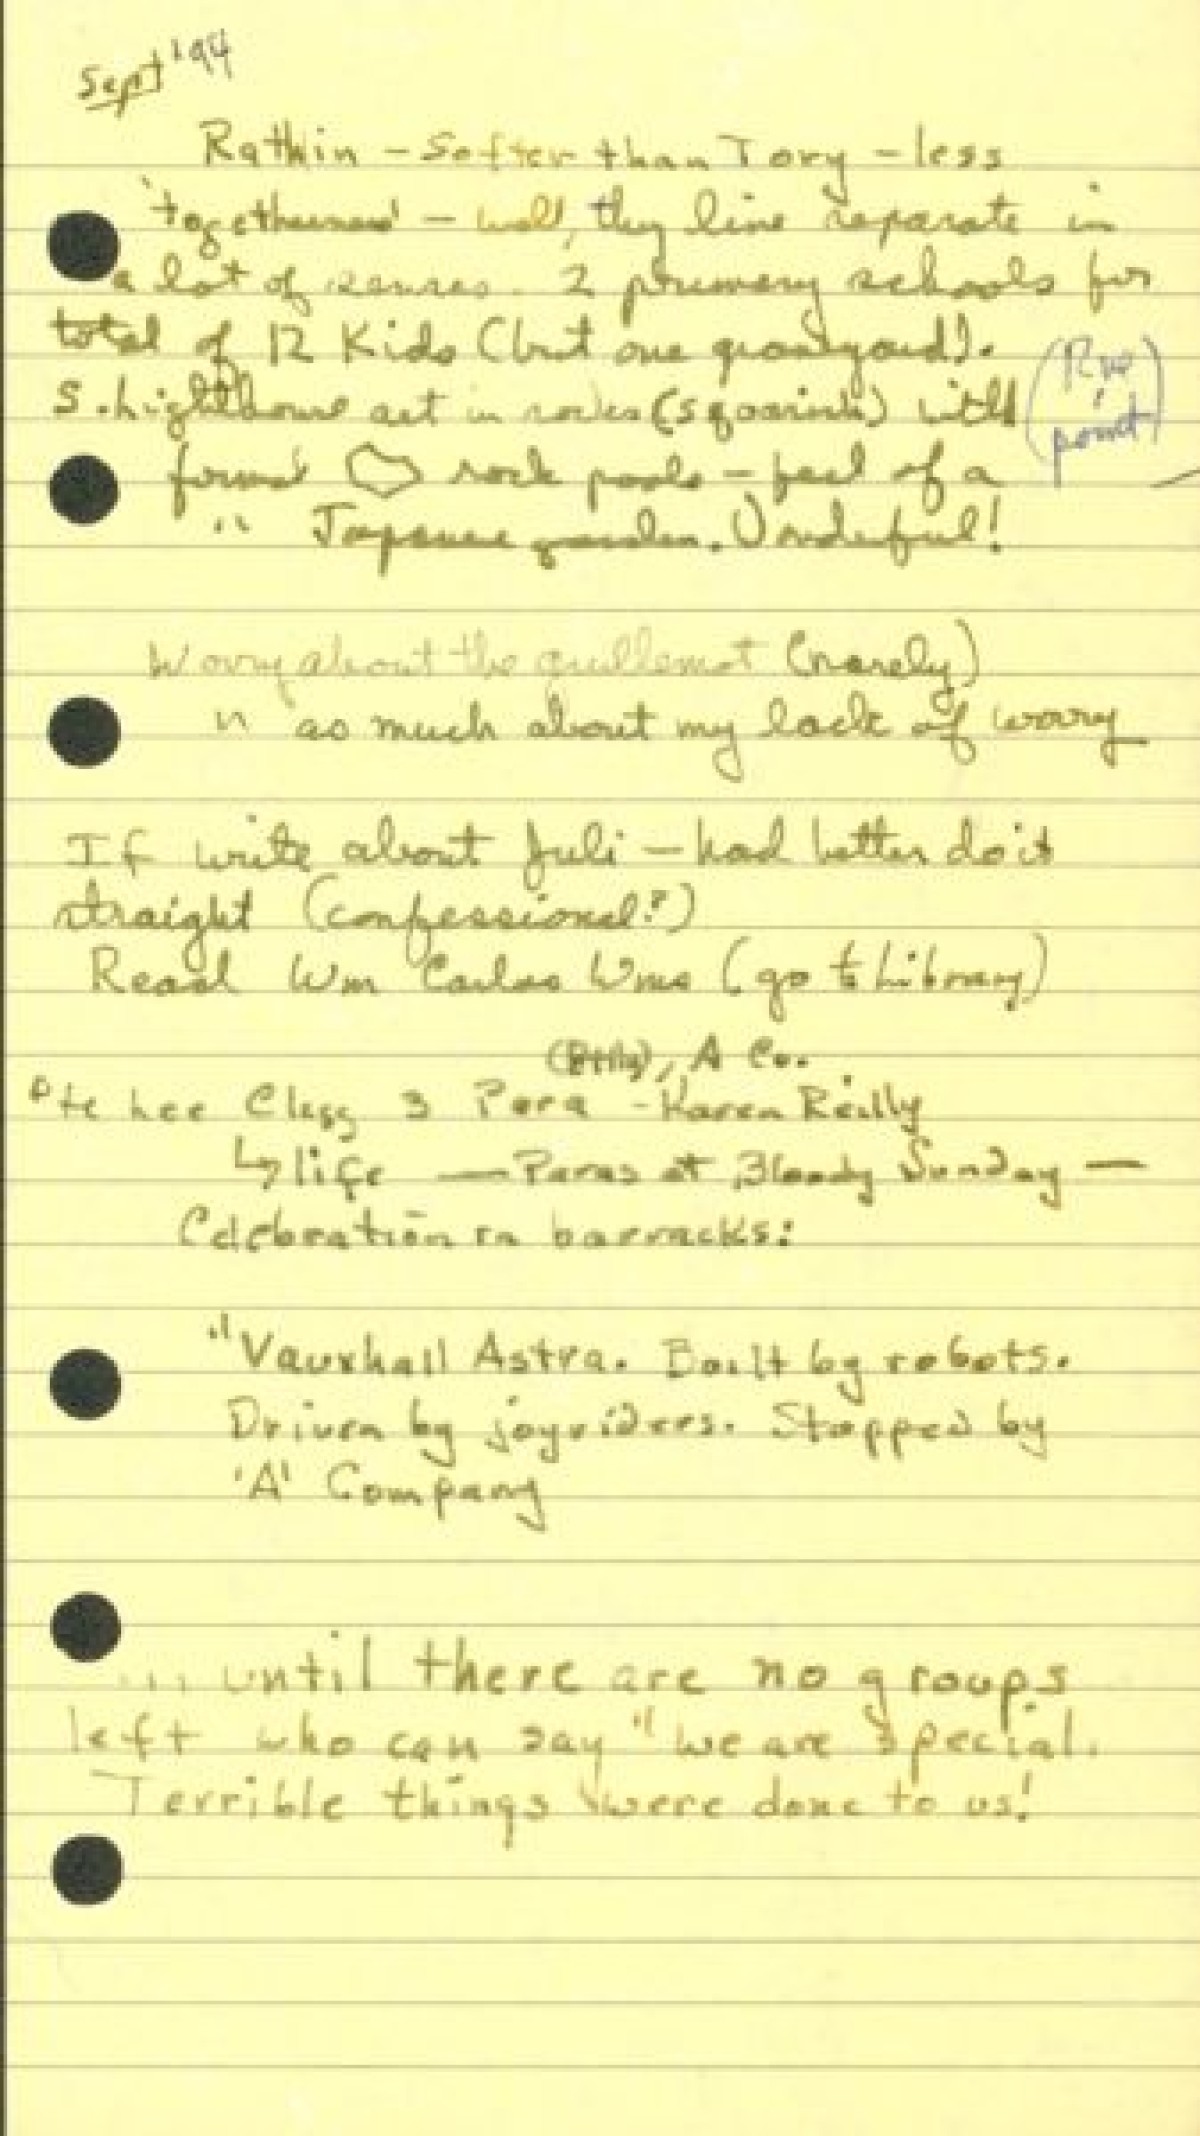 Sept '94
Rathin - softer than Tory - less
'togetherness' - well, they live separate in
a lot of senses. 2 primary schools for
total of 12 Kids (but one graveyard).
S. Lighthouse set in rocks (squarish) with
(Rue point)
formal rock pools - feel of a
" Japanese garden. Wonderful!
Worry about the guillemot (rarely)
" as much about my lack of worry
If write about Juli - had better do it
straight (confessional?)
Read Wm Carlos Wms (go to Library)
, A Co.
Pte Lee Clegg 3 Para - Karen Reilly
↳ life — Paras at Bloody Sunday —
Celebration in barracks:
"Vauxhall Astra. Built by robots.
Driven by joyriders. Stopped by
'A' Company
... until there are no groups
left who can say "we are special.
Terrible things were done to us!